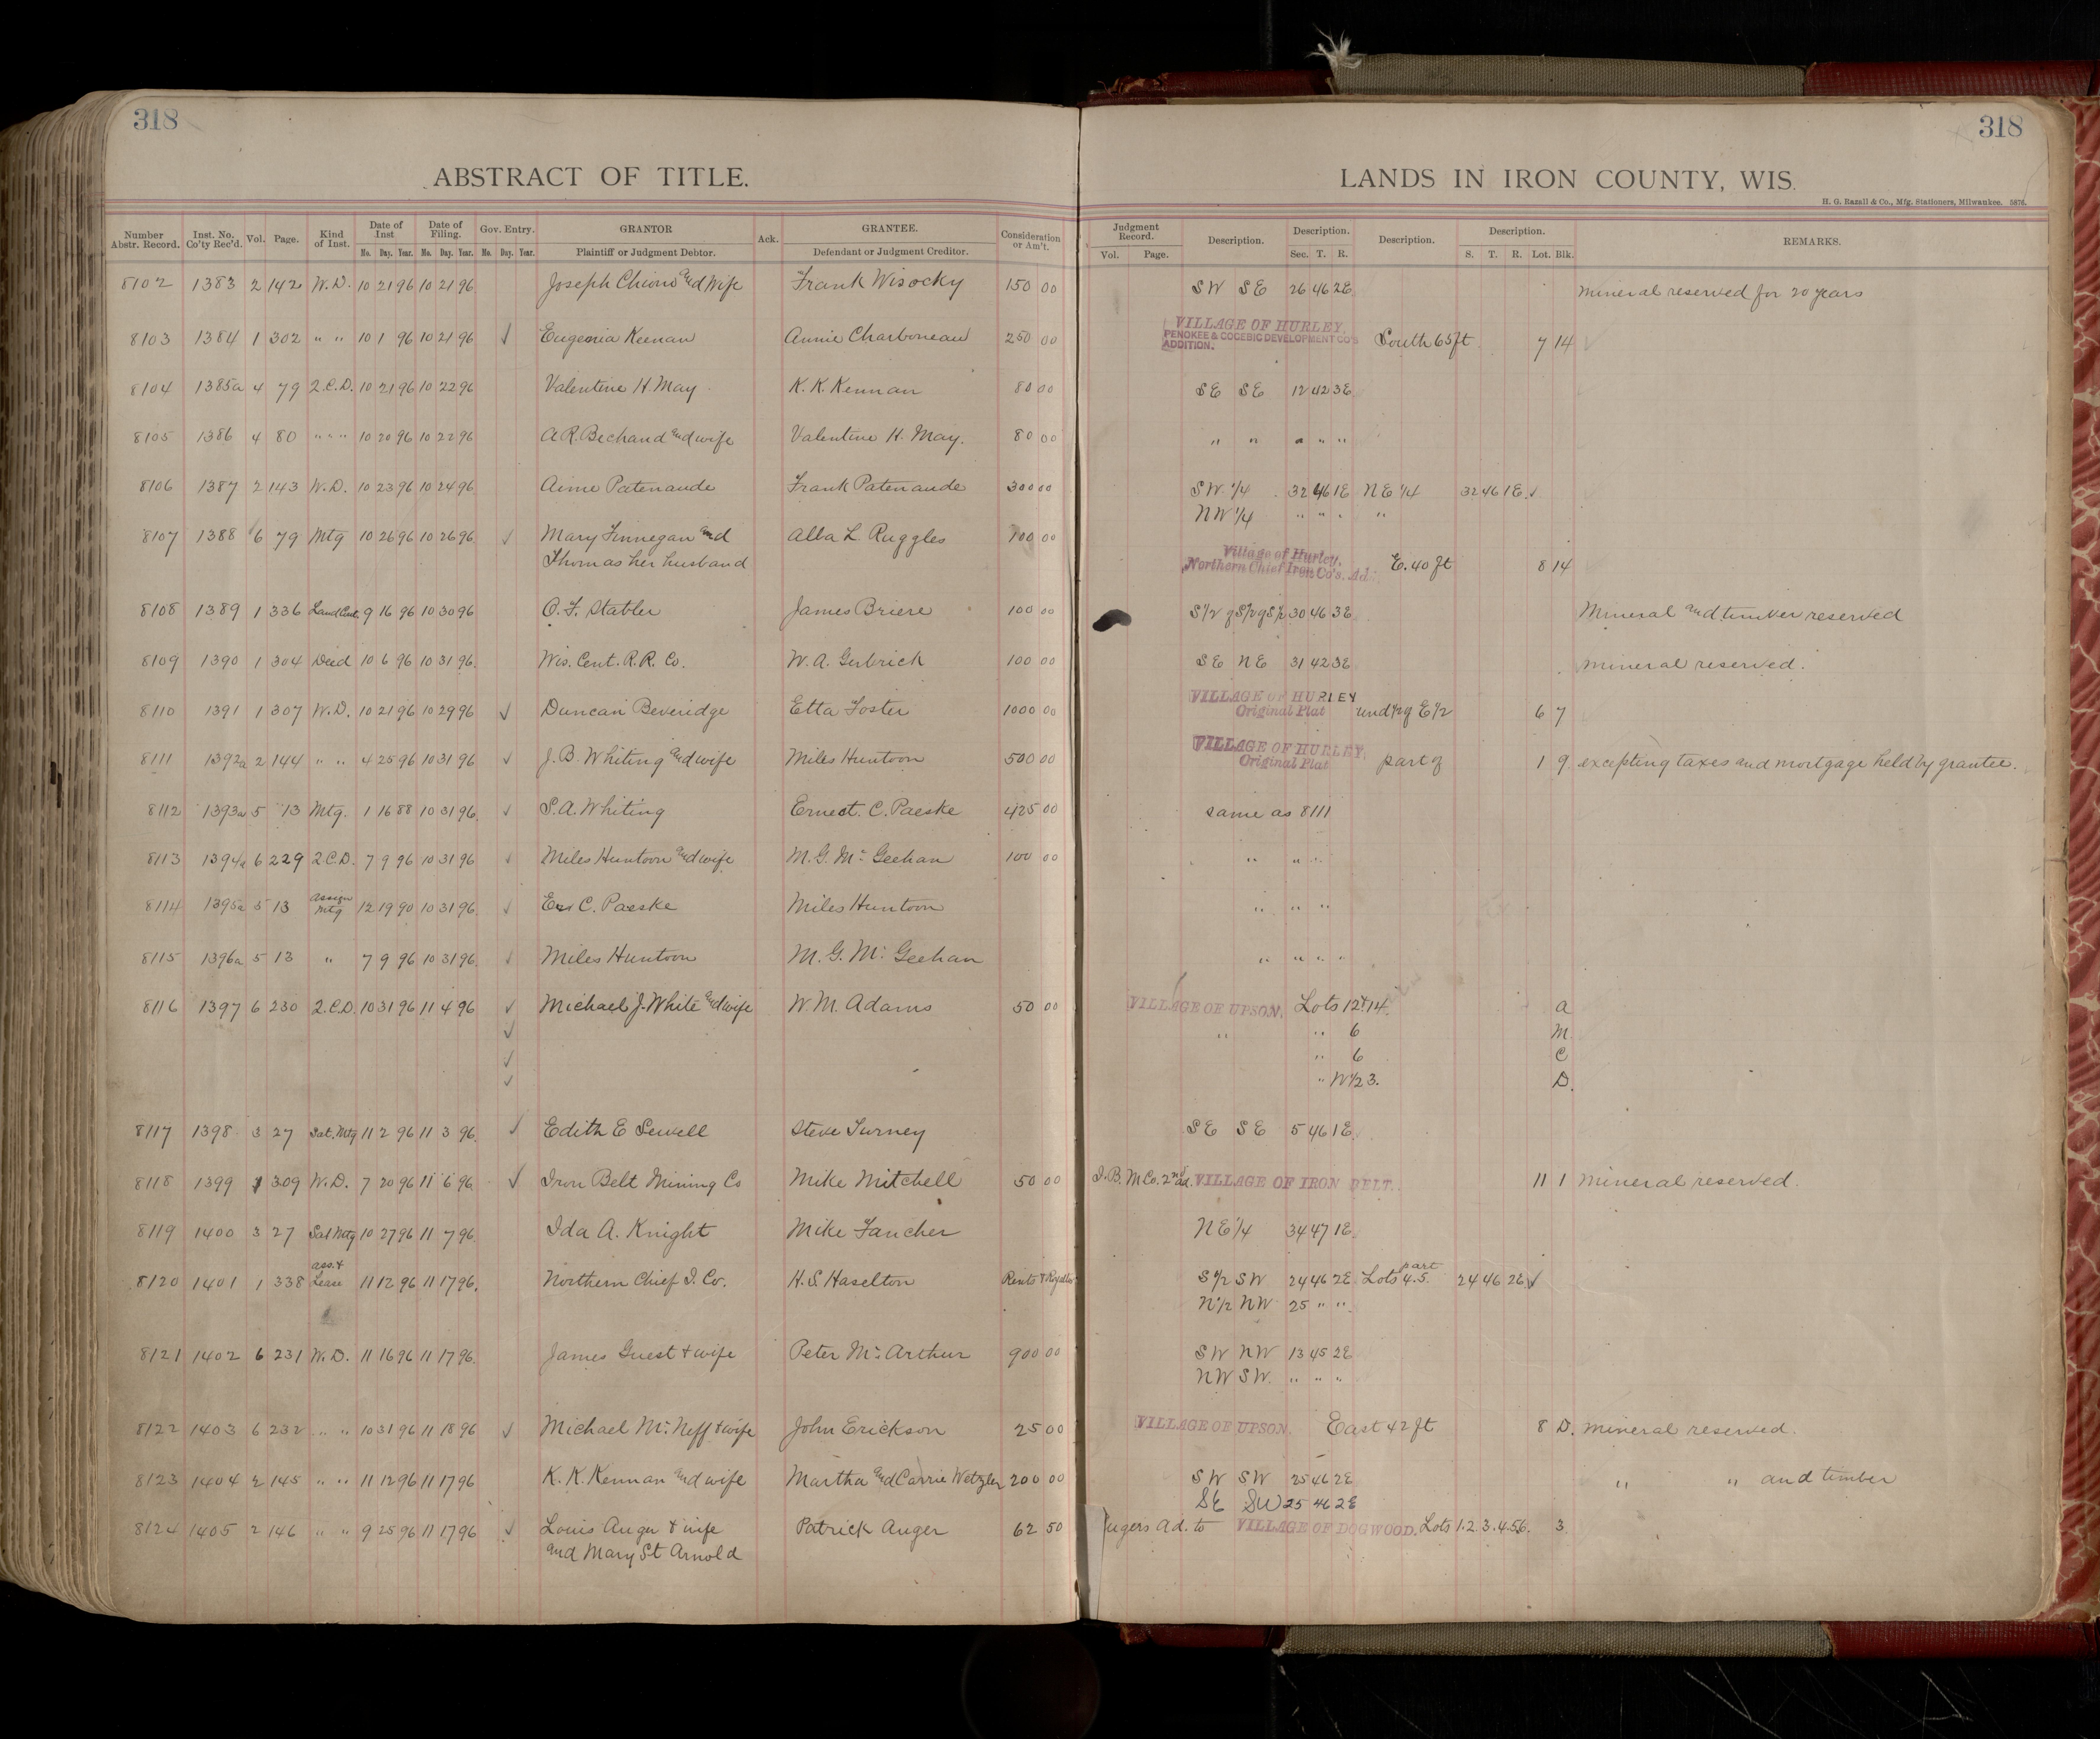 318
318
ABSTRACT OF TITLE.
LANDS IN IRON COUNTY, WIS.
H. G. Razall & Co., Mfg. Stationers, Milwaukee. 5876.
Number Abstr. Record. Inst. No. Co'ty Rec'd. Vol. Page. Kind of Inst. Date of Inst Mo. Day. Year. Date of Filing. Mo. Day. Year. Gov. Entry. Mo. Day. Year. GRANTOR Plaintiff or Judgment Debtor. Ack. GRANTEE. Defendant or Judgment Creditor. Consideration or Am't. Judgment Record. Vol. Page. Description. Description. Sec. T. R. Description. Description. S. T. R. Lot. Blk. REMARKS.
8102 1383 2 142 W.D. 10 21 96 10 21 96 Joseph and Wife Frank Wisocky 150 00 SW SE 26 46 2E Mineral reserved for 20 years
8103 1384 1 302 " " 10 1 96 10 21 96 ✓ Eugenia Keenan Annie Charboneau 250 00 VILLAGE OF HURLEY. PENOKEE & GOGEBIC DEVELOPMENT CO'S ADDITION. South 65 ft 7 14
8104 1385a 4 79 Q.C.D. 10 21 96 10 22 96 Valentine H. May K. K. Kennan 80 00 SE SE 12 42 3E
8105 1386 4 80 " " " 10 20 96 10 22 96 A R. Bechand and wife Valentine H. May. 80 00 " " " " "
8106 1387 2 143 W.D. 10 23 96 10 24 96 Aime Patenaude Frank Patenaude 300 00 SW 1/4 32 46 1E NE 1/4 32 46 1E ✓
NW 1/4 " " " "
8107 1388 6 79 Mtg 10 26 96 10 26 96 ✓ Mary Finnegan and Alba L. Ruggles 700 00
Thomas her husband Village of Hurley, Northern Chief Iron Co's. Ad. E. 40 ft 8 14
8108 1389 1 336 Land Cont. 9 16 96 10 30 96 O. F. Stabler James Briere 100 00 S1/2 of S1/2 of S1/2 30 46 3E Mineral and timber reserved
8109 1390 1 304 Deed 10 6 96 10 31 96 Wis. Cent. R.R. Co. W. A. Gerbrick 100 00 SE NE 31 42 3E mineral reserved.
8110 1391 1 307 W.D. 10 21 96 10 29 96 ✓ Duncan Beveridge Etta Foster 1000 00 VILLAGE OF HURLEY Original Plat und 1/2 of E 1/2 6 7
8111 1392a 2 144 " " 4 25 96 10 31 96 ✓ J. B. Whiting and wife Miles Huntoon 500 00 VILLAGE OF HURLEY, Original Plat part of 1 9 excepting taxes and mortgage held by grantee.
8112 1393a 5 13 Mtg. 1 16 88 10 31 96 ✓ S. A. Whiting Ernest. C. Paeske 425 00 same as 8111
8113 1394a 6 229 Q.C.D. 7 9 96 10 31 96 ✓ Miles Huntoon and wife M. G. Mc Geehan 100 00 " " "
8114 1395a 5 13 Assign Mtg 12 19 90 10 31 96 ✓ C. Paeske Miles Huntoon " " "
8115 1396a 5 13 " 7 9 96 10 31 96 ✓ Miles Huntoon M. G. Mc Geehan " " " "
8116 1397 6 230 Q.C.D. 10 31 96 11 4 96 ✓ Michael J. White and wife W. M. Adams 50 00 VILLAGE OF UPSON. Lots 12 & 14 A
✓ " " 6 M.
✓ " 6 C
✓ " W 1/2 3. D.
8117 1398 3 27 Sat. Mtg 11 2 96 11 3 96 ✓ Edith E Sewell Steve Turney SE SE 5 46 1E
8118 1399 1 309 W.D. 7 20 96 11 6 96 ✓ Iron Belt Mining Co Mike Mitchell 50 00 I. B. M Co. 2nd ad. VILLAGE OF IRON BELT. 11 1 mineral reserved.
8119 1400 3 27 Sat Mtg 10 27 96 11 7 96 Ida A. Knight Mike Fancher NE 1/4 34 47 1E
8120 1401 1 338 ass. & Lease 11 12 96 11 17 96 Northern Chief I. Co. H. S. Haselton Rents & Royalties S 1/2 SW 24 46 2E Lots part 4.5. 24 46 2E ✓
N 1/2 NW 25 " "
8121 1402 6 231 W.D. 11 16 96 11 17 96 James Guest & wife Peter Mc Arthur 900 00 SW NW 13 45 2E
NW SW. " " "
8122 1403 6 232 " " 10 31 96 11 18 96 ✓ Michael Mc Neff & wife John Erickson 25 00 VILLAGE OF UPSON. East 42 ft 8 D. mineral reserved.
8123 1404 2 145 " " 11 12 96 11 17 96 K. K. Kennan and wife Martha and Carrie Wetzler 200 00 SW SW 25 46 2E " " and timber
SE SW 25 46 2E
8124 1405 2 146 " " 9 25 96 11 17 96 ✓ Louis Auger & wife Patrick Auger 62 50 ugers Ad. to VILLAGE OF DOGWOOD. Lots 1.2.3.4.5.6. 3
and Mary St Arnold